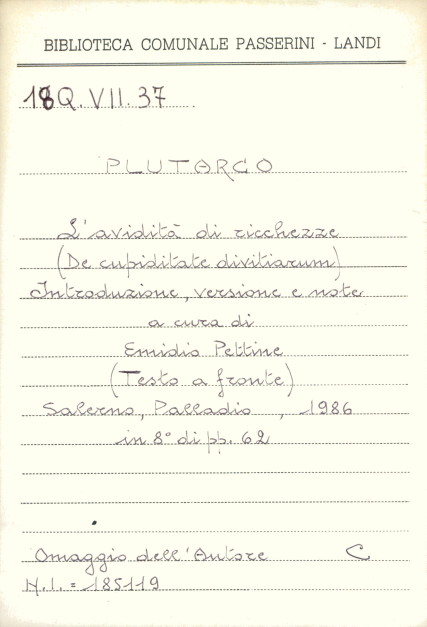 BIBLIOTECA COMUNALE PASSERINI - LANDI
18Q.VII.37
PLUTARCO
L'avidità di ricchezze
(De cupiditate divitiarum)
Introduzione, versione e note
a cura di
Emidio Pettine
(Testo a fronte)
Salerno, Palladio , 1986
in 8° di pp. 62
Omaggio dell'Autore C
N.I. = 185119